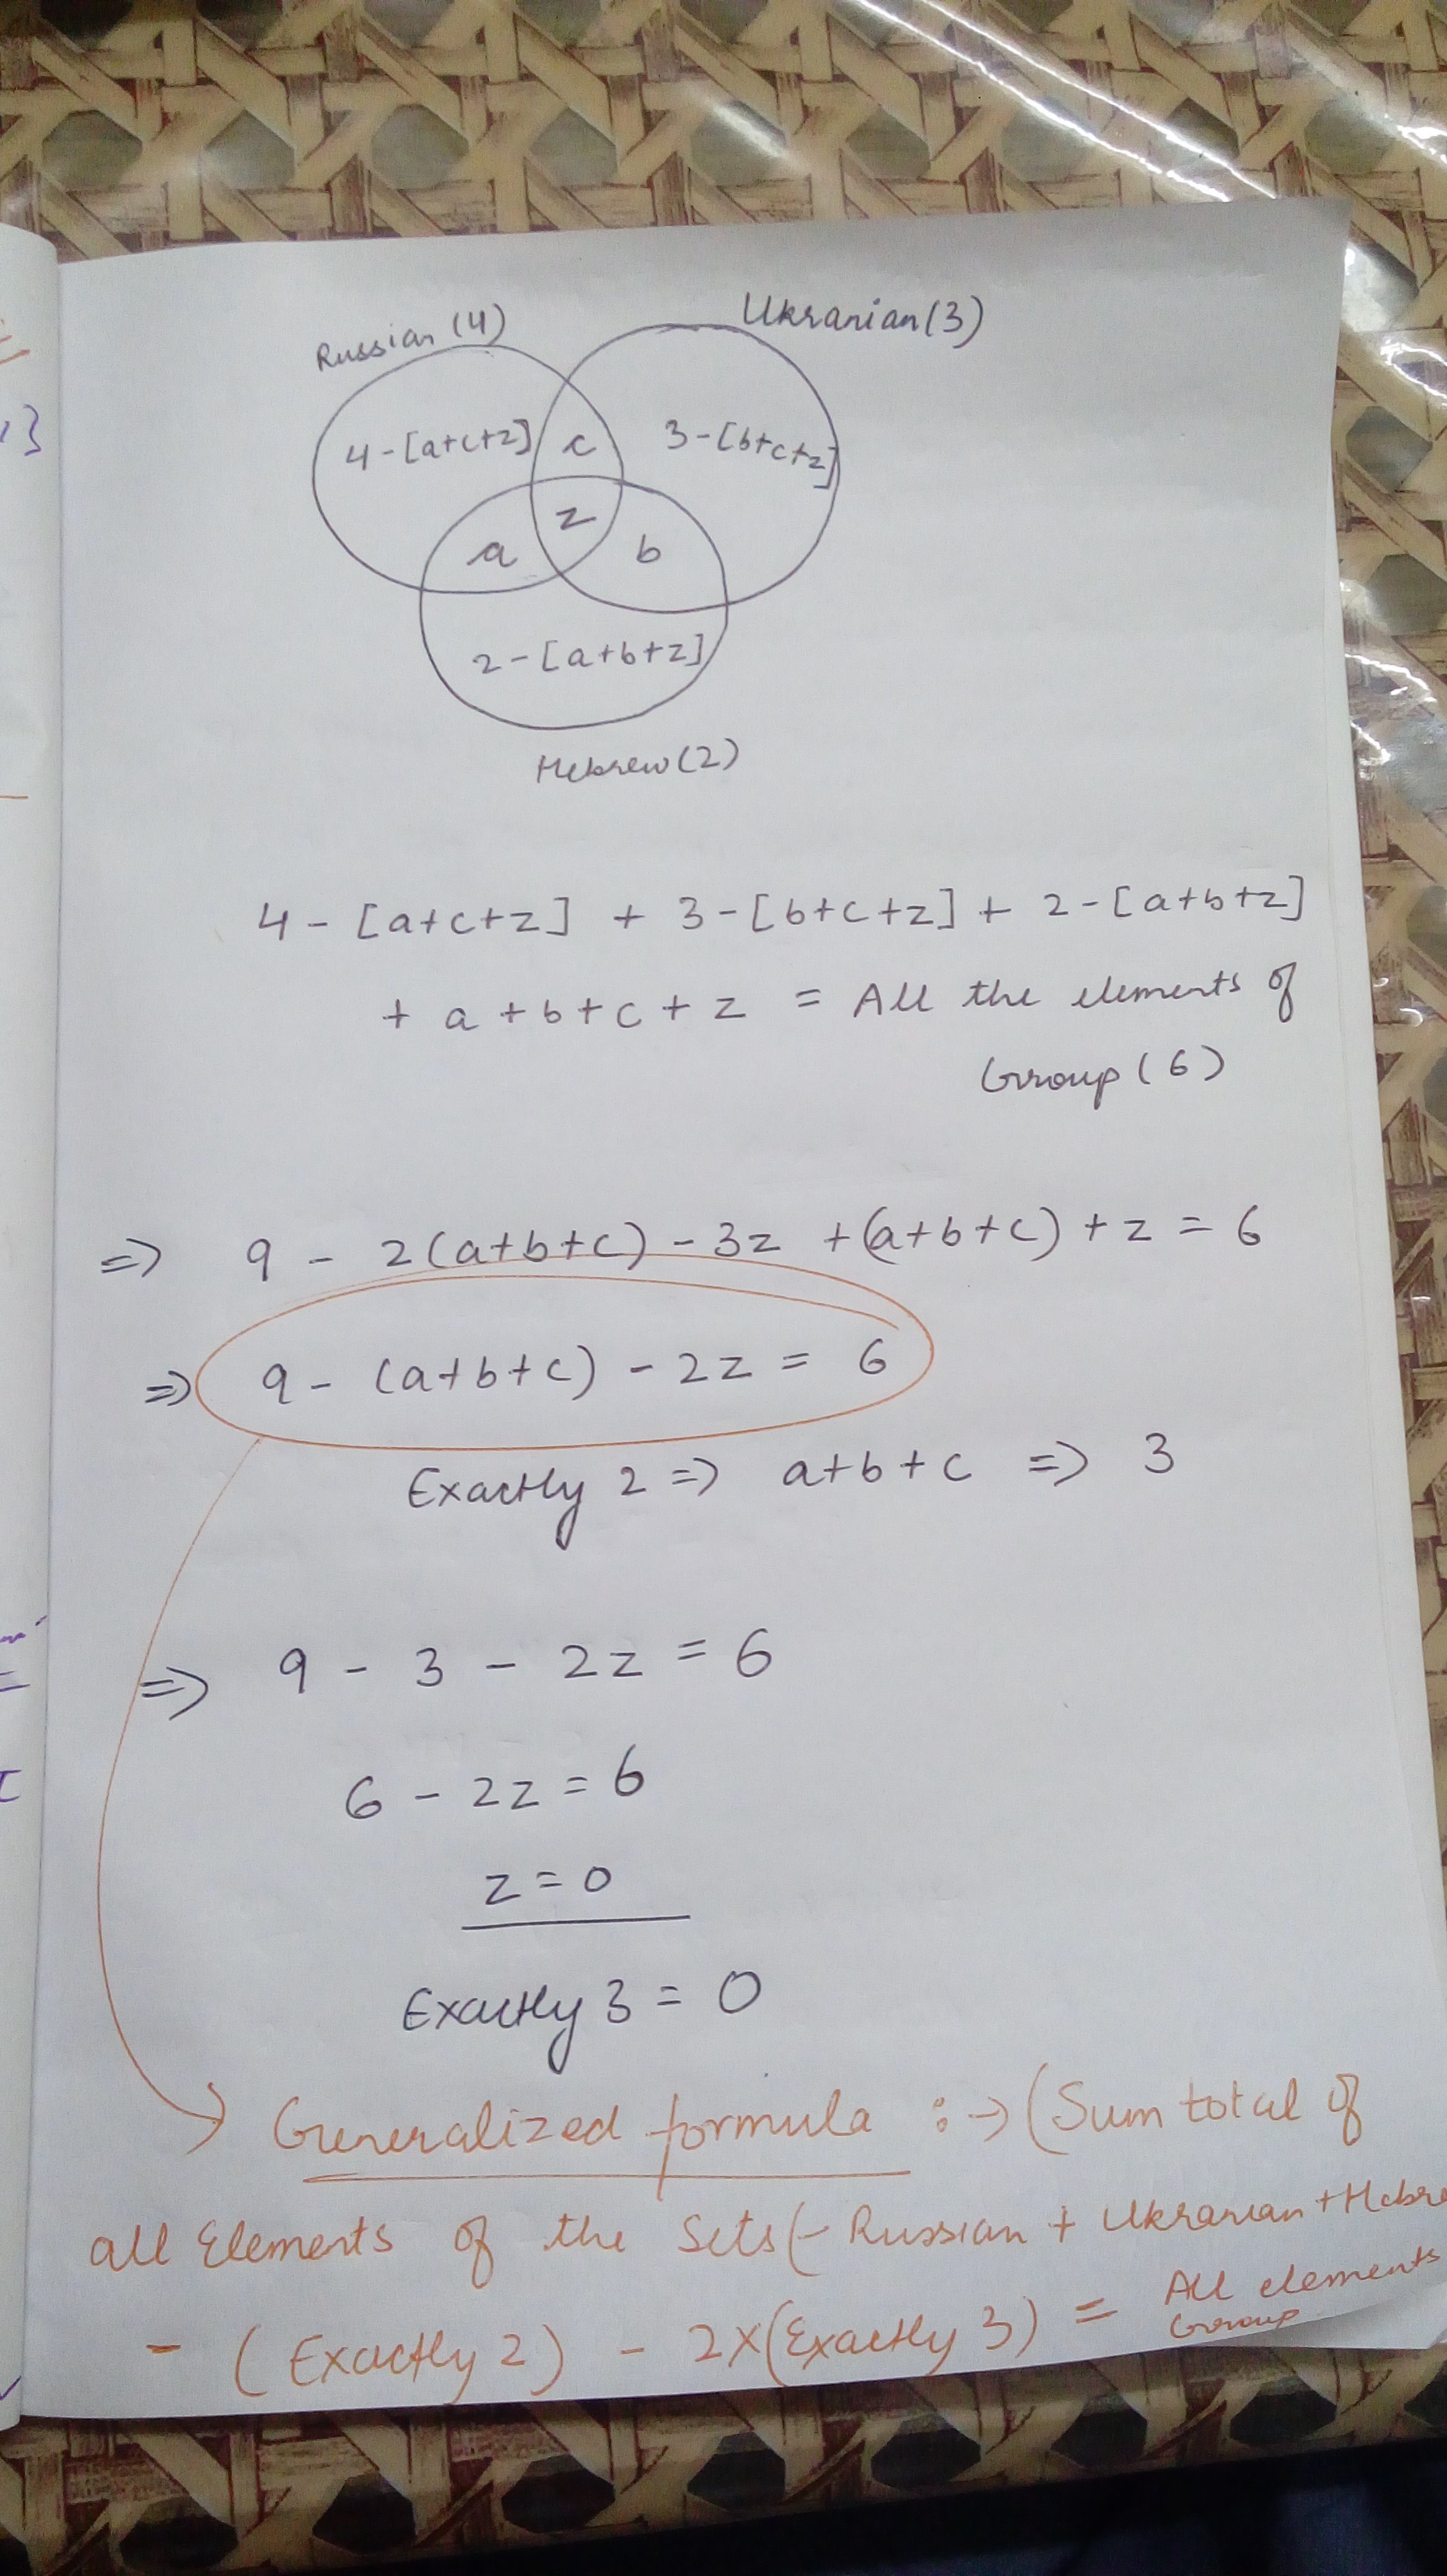 Russian (4)
Ukranian (3)
4-[a+c+z]
c
3-[b+c+z]
z
a
b
2-[a+b+z]
Hebrew (2)
4 - [a+c+z] + 3-[b+c+z] + 2-[a+b+z]
+ a + b + c + z = All the elements of
Group (6)
=> 9 - 2(a+b+c) - 3z + (a+b+c) + z = 6
=> 9 - (a+b+c) - 2z = 6
Exactly 2 => a+b+c => 3
=> 9 - 3 - 2z = 6
6 - 2z = 6
z = 0
Exactly 3 = 0
Generalized formula :-> (Sum total of
all Elements of the Sets (- Russian + Ukranian + Hebre
- (Exactly 2) - 2x(Exactly 3) = All elements
Group